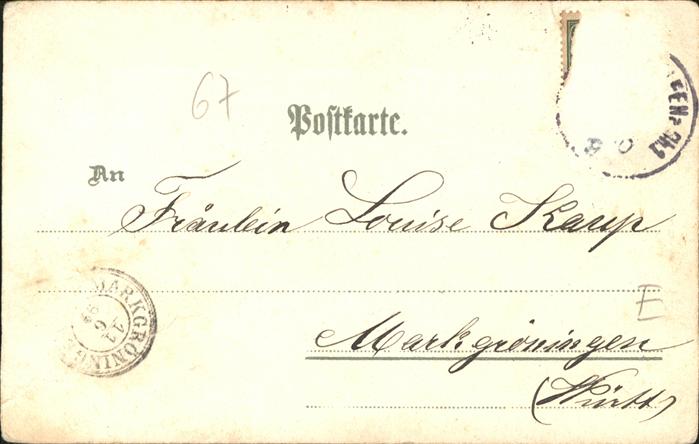 67
Postkarte.
An
Fräulein Louise Kaup
E
Markgröningen
(Württ)
MARKGRÖNINGEN
11
6
99